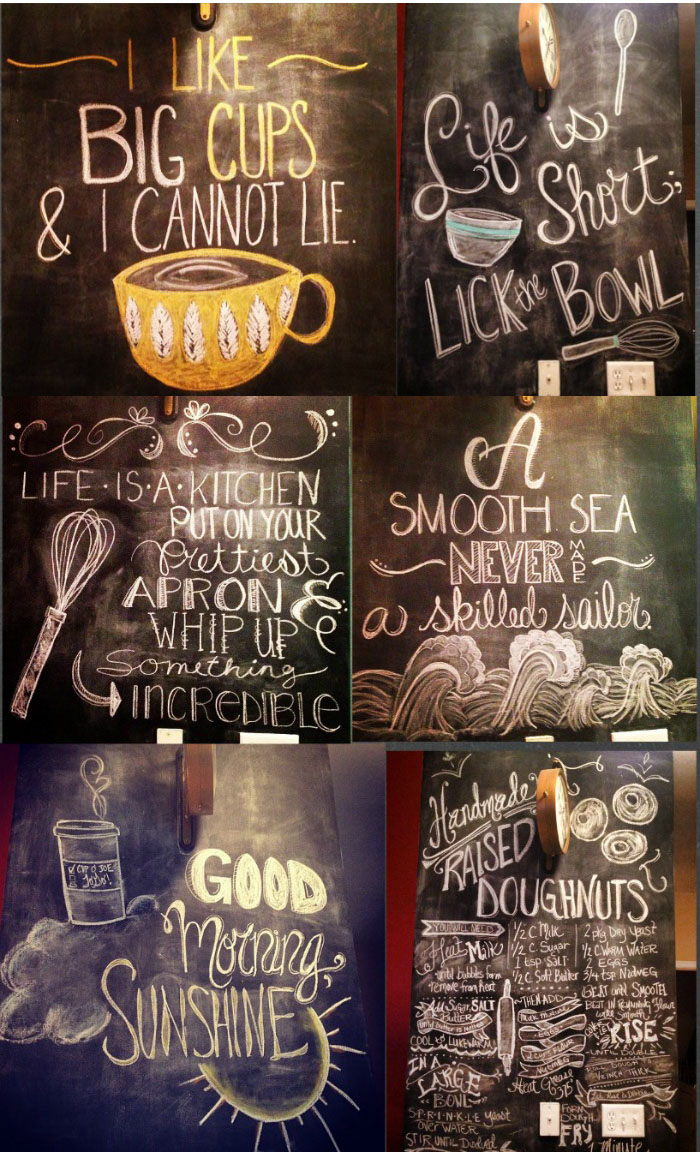 I LIKE
BIG CUPS
& I CANNOT LIE.
Life is
Short;
LICK the BOWL
LIFE·IS·A·KITCHEN
PUT ON YOUR
Prettiest
APRON &
WHIP UP
Something
INCREDIBLE
A
SMOOTH SEA
NEVER MADE
a skilled sailor.
CUP O' JOE
GOOD
Morning,
SUNSHINE
Handmade
RAISED
DOUGHNUTS
YOU WILL NEED
1/2 C Milk
1/2 C. Sugar
1 tsp SALT
1/2 C Soft Butter
2 pkg Dry Yeast
1/2 C WARM WATER
2 EGGS
3/4 tsp Nutmeg
Heat Milk
until bubbles form
remove from heat
Add Sugar, SALT
Butter
COOL to LUKEWARM
IN A
LARGE
BOWL
SPRINKLE yeast
OVER WATER
STIR UNTIL Dissolved
THEN ADD
Milk Mixture
EGGS
NUTMEG
BEAT until SMOOTH
BEAT IN REMAINING Flour
until smooth
RISE
UNTIL DOUBLE
THICK
Heat Grease
FORM
DOUGH
FRY
1 Minute